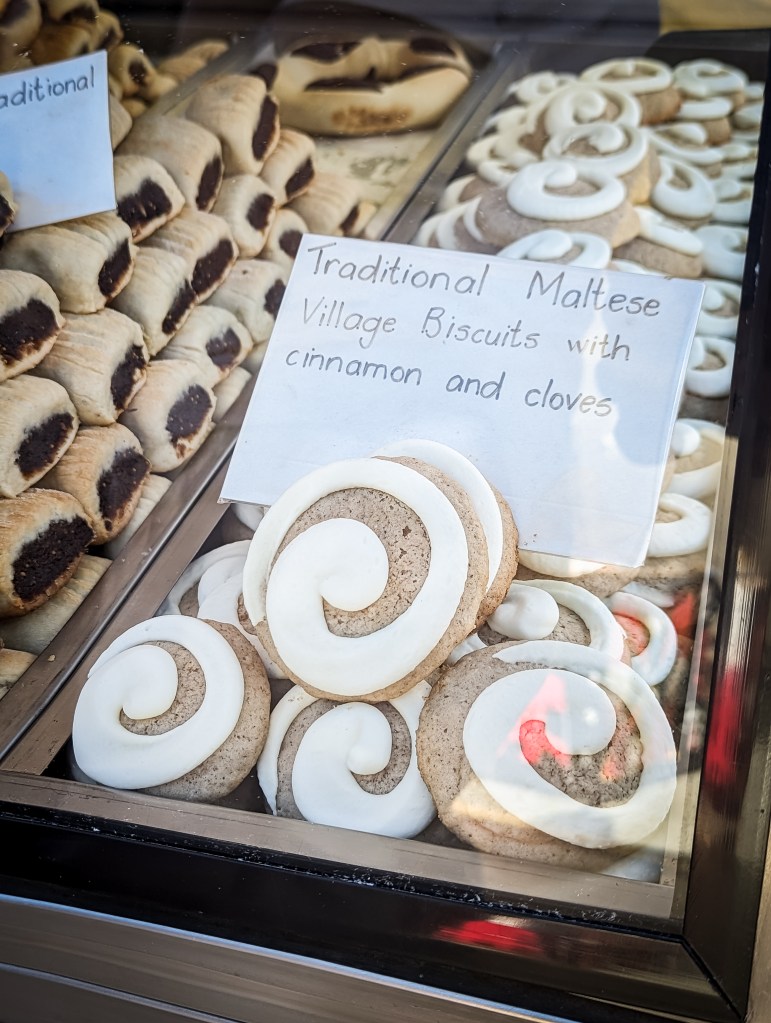 aditional
Traditional Maltese
Village Biscuits with
cinnamon and cloves